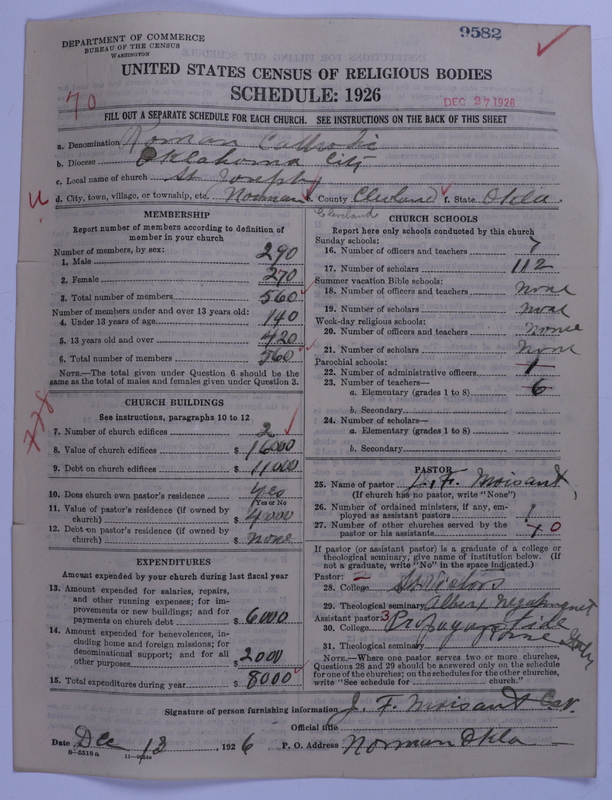 9582
DEPARTMENT OF COMMERCE
BUREAU OF THE CENSUS
WASHINGTON
UNITED STATES CENSUS OF RELIGIOUS BODIES
SCHEDULE: 1926
70
DEC 27 1926
FILL OUT A SEPARATE SCHEDULE FOR EACH CHURCH. SEE INSTRUCTIONS ON THE BACK OF THIS SHEET
a. Denomination Roman Catholic
b. Diocese Oklahoma City
c. Local name of church St Josephs
d. City, town, village, or township, etc. Norman e. County Cleveland f. State Okla.
Cleveland
MEMBERSHIP
Report number of members according to definition of
member in your church
Number of members, by sex:
1. Male 290
2. Female 270
3. Total number of members 560
Number of members under and over 13 years old:
4. Under 13 years of age 140
5. 13 years old and over 420
6. Total number of members 560
NOTE.—The total given under Question 6 should be
same as the total of males and females given under Question 3.
CHURCH BUILDINGS
See instructions, paragraphs 10 to 12
7. Number of church edifices 2
8. Value of church edifices $ 16000
9. Debt on church edifices $ 11000
778
10. Does church own pastor's residence yes
Yes or No
11. Value of pastor's residence (if owned by
church) $ 4000
12. Debt on pastor's residence (if owned by
church) $ none
EXPENDITURES
Amount expended by your church during last fiscal year
13. Amount expended for salaries, repairs,
and other running expenses; for im-
provements or new buildings; and for
payments on church debt $ 6000
14. Amount expended for benevolences, in-
cluding home and foreign missions; for
denominational support; and for all
other purposes $ 2000
15. Total expenditures during year $ 8000
CHURCH SCHOOLS
Report here only schools conducted by this church
Sunday schools:
16. Number of officers and teachers 7
17. Number of scholars 112
Summer vacation Bible schools:
18. Number of officers and teachers none
19. Number of scholars none
Week-day religious schools:
20. Number of officers and teachers none
21. Number of scholars none
Parochial schools:
22. Number of administrative officers 1
23. Number of teachers—
a. Elementary (grades 1 to 8) 6
b. Secondary
24. Number of scholars—
a. Elementary (grades 1 to 8)
b. Secondary
PASTOR
25. Name of pastor J. F. Moisant,
(If church has no pastor, write "None")
26. Number of ordained ministers, if any, em-
ployed as assistant pastors 1
27. Number of other churches served by the
pastor or his assistants 0
If pastor (or assistant pastor) is a graduate of a college or
theological seminary, give name of institution below. (If
not a graduate, write "No" in the space indicated.)
Pastor: 2
28. College St Viators
29. Theological seminary Albert
Assistant pastor: 3
30. College Propaganda Fide
31. Theological seminary Rome Italy
NOTE.—Where one pastor serves two or more churches,
Questions 28 and 29 should be answered only on the schedule
for one of the churches; on the schedules for the other churches,
write "See schedule for church."
Signature of person furnishing information J. F. Moisant
Official title
Date Dec 13, 1926 P. O. Address Norman Okla
8-5518a